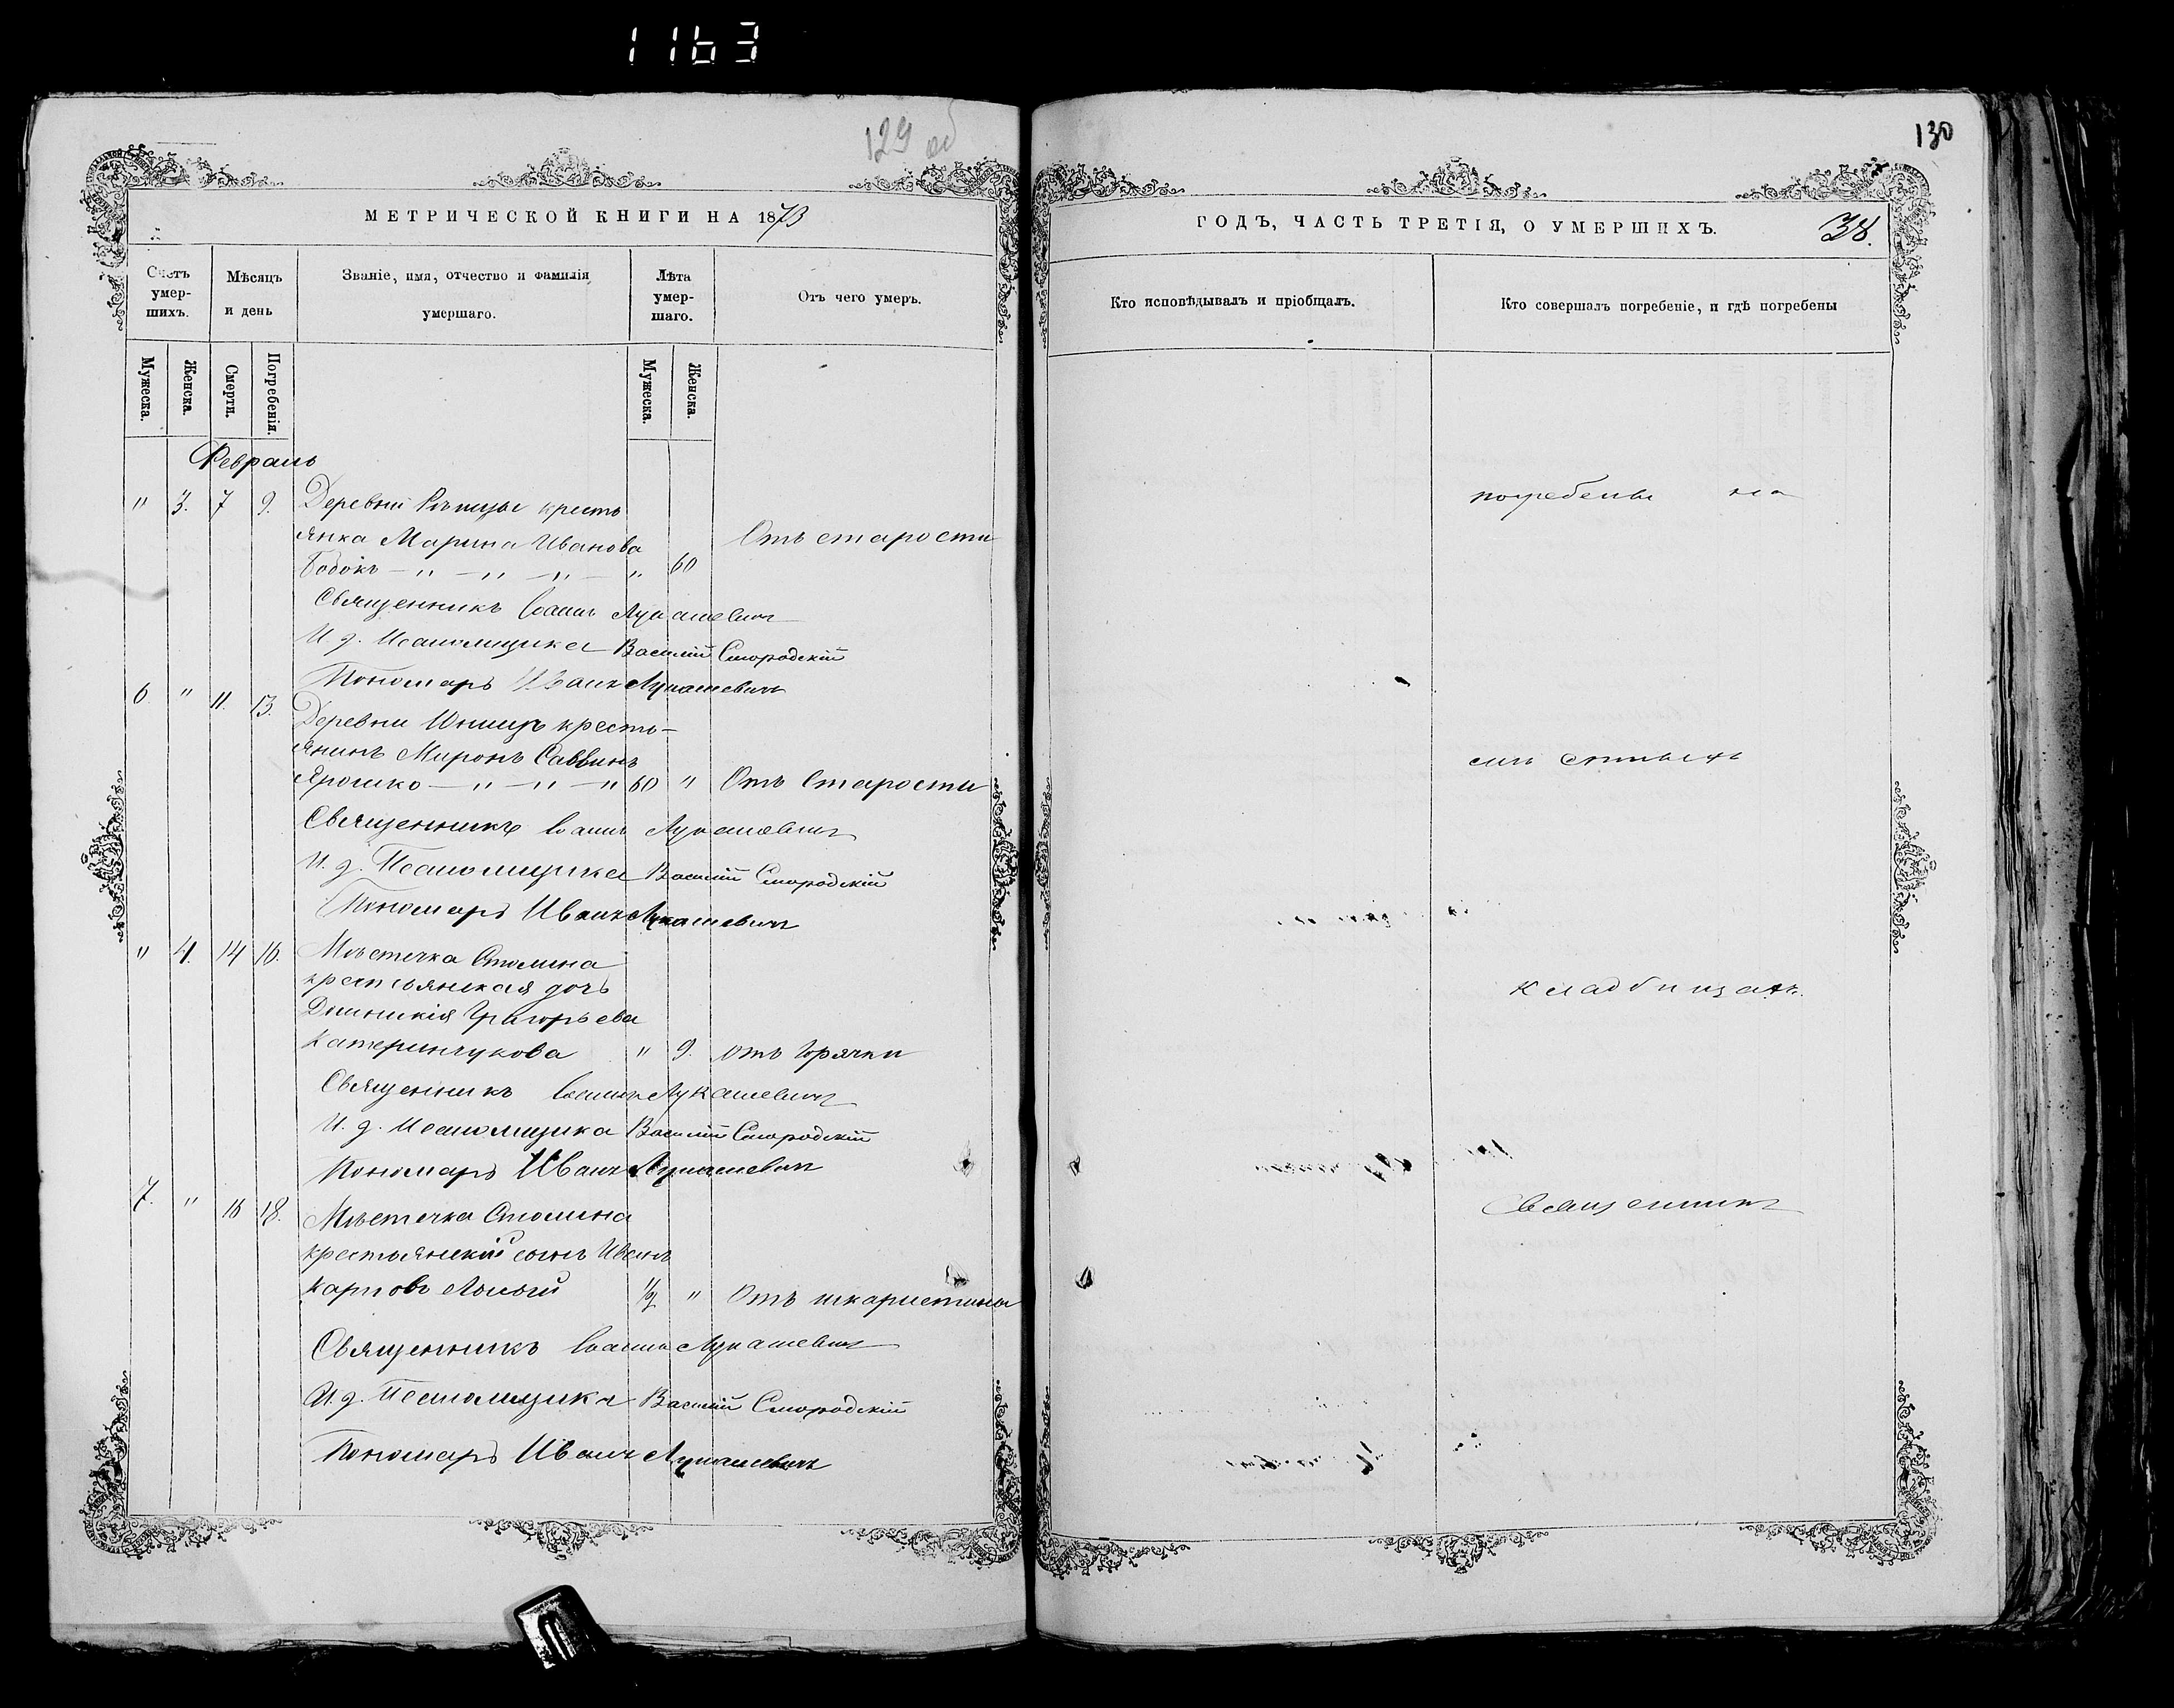 1163
129 об
130
МЕТРИЧЕСКОЙ КНИГИ НА 1873
ГОДЪ, ЧАСТЬ ТРЕТІЯ, О УМЕРШИХЪ.
38.
Счетъ умер-шихъ.
Мѣсяцъ и день
Званіе, имя, отчество и фамилія умершаго.
Лѣта умер-шаго.
Отъ чего умеръ.
Кто исповѣдывалъ и пріобщалъ.
Кто совершалъ погребеніе, и гдѣ погребены
Мужеска.
Женска.
Смерти.
Погребенія.
Мужеска.
Женска.
Февраль
" 3. 7 9. Деревни кресть
янка Марина Иванова Отъ старости
Бодокъ — " — " — " — " 60
Священникъ Іоаннъ Лукашевичъ
И д. Псаломщика Василій Смородскій
Пономарь Иванъ Лукашевичъ
6 " 11. 13. Деревни кресть-
янинъ Миронъ Саввинъ
Ярошко — " — " — " 60 " Отъ старости
Священникъ Іоаннъ Лукашевичъ
И. д. Псаломщика Василій Смородскій
Пономарь Иванъ Лукашевичъ
" 4. 14 16. Мѣстечка Столина
крестьянская дочь
Григорьева
Катеринчукова " 9. отъ горячки
Священникъ Іоаннъ Лукашевичъ
И. д. Псаломщика Василій Смородскій
Пономарь Иванъ Лукашевичъ
7. " 16 18. Мѣстечка Столина
крестьянскій сынъ Иванъ
Карповъ 1/2 " Отъ шкарлетины
Священникъ Іоаннъ Лукашевичъ
И. д. Псаломщика Василій Смородскій
Пономарь Иванъ Лукашевичъ
погребены на
кладбищахъ.
Священникъ